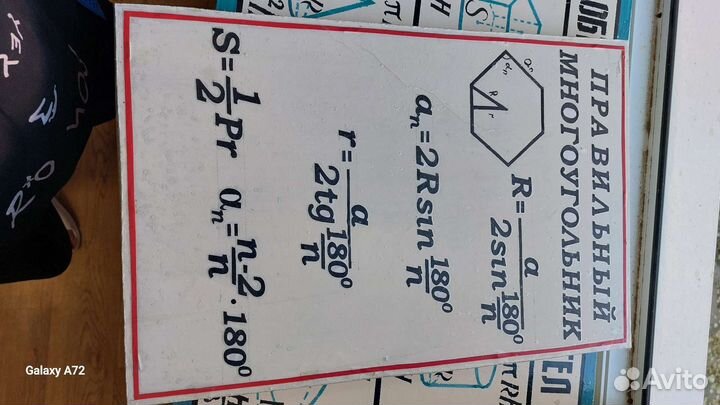 ПРАВИЛЬНЫЙ
МНОГОУГОЛЬНИК
aₙ
αₙ
R
r
R = a / (2sin 180°/n)
aₙ = 2Rsin 180°/n
r = a / (2tg 180°/n)
S = 1/2 Pr   αₙ = n-2/n · 180°
ТЕЛ
Galaxy A72
Avito